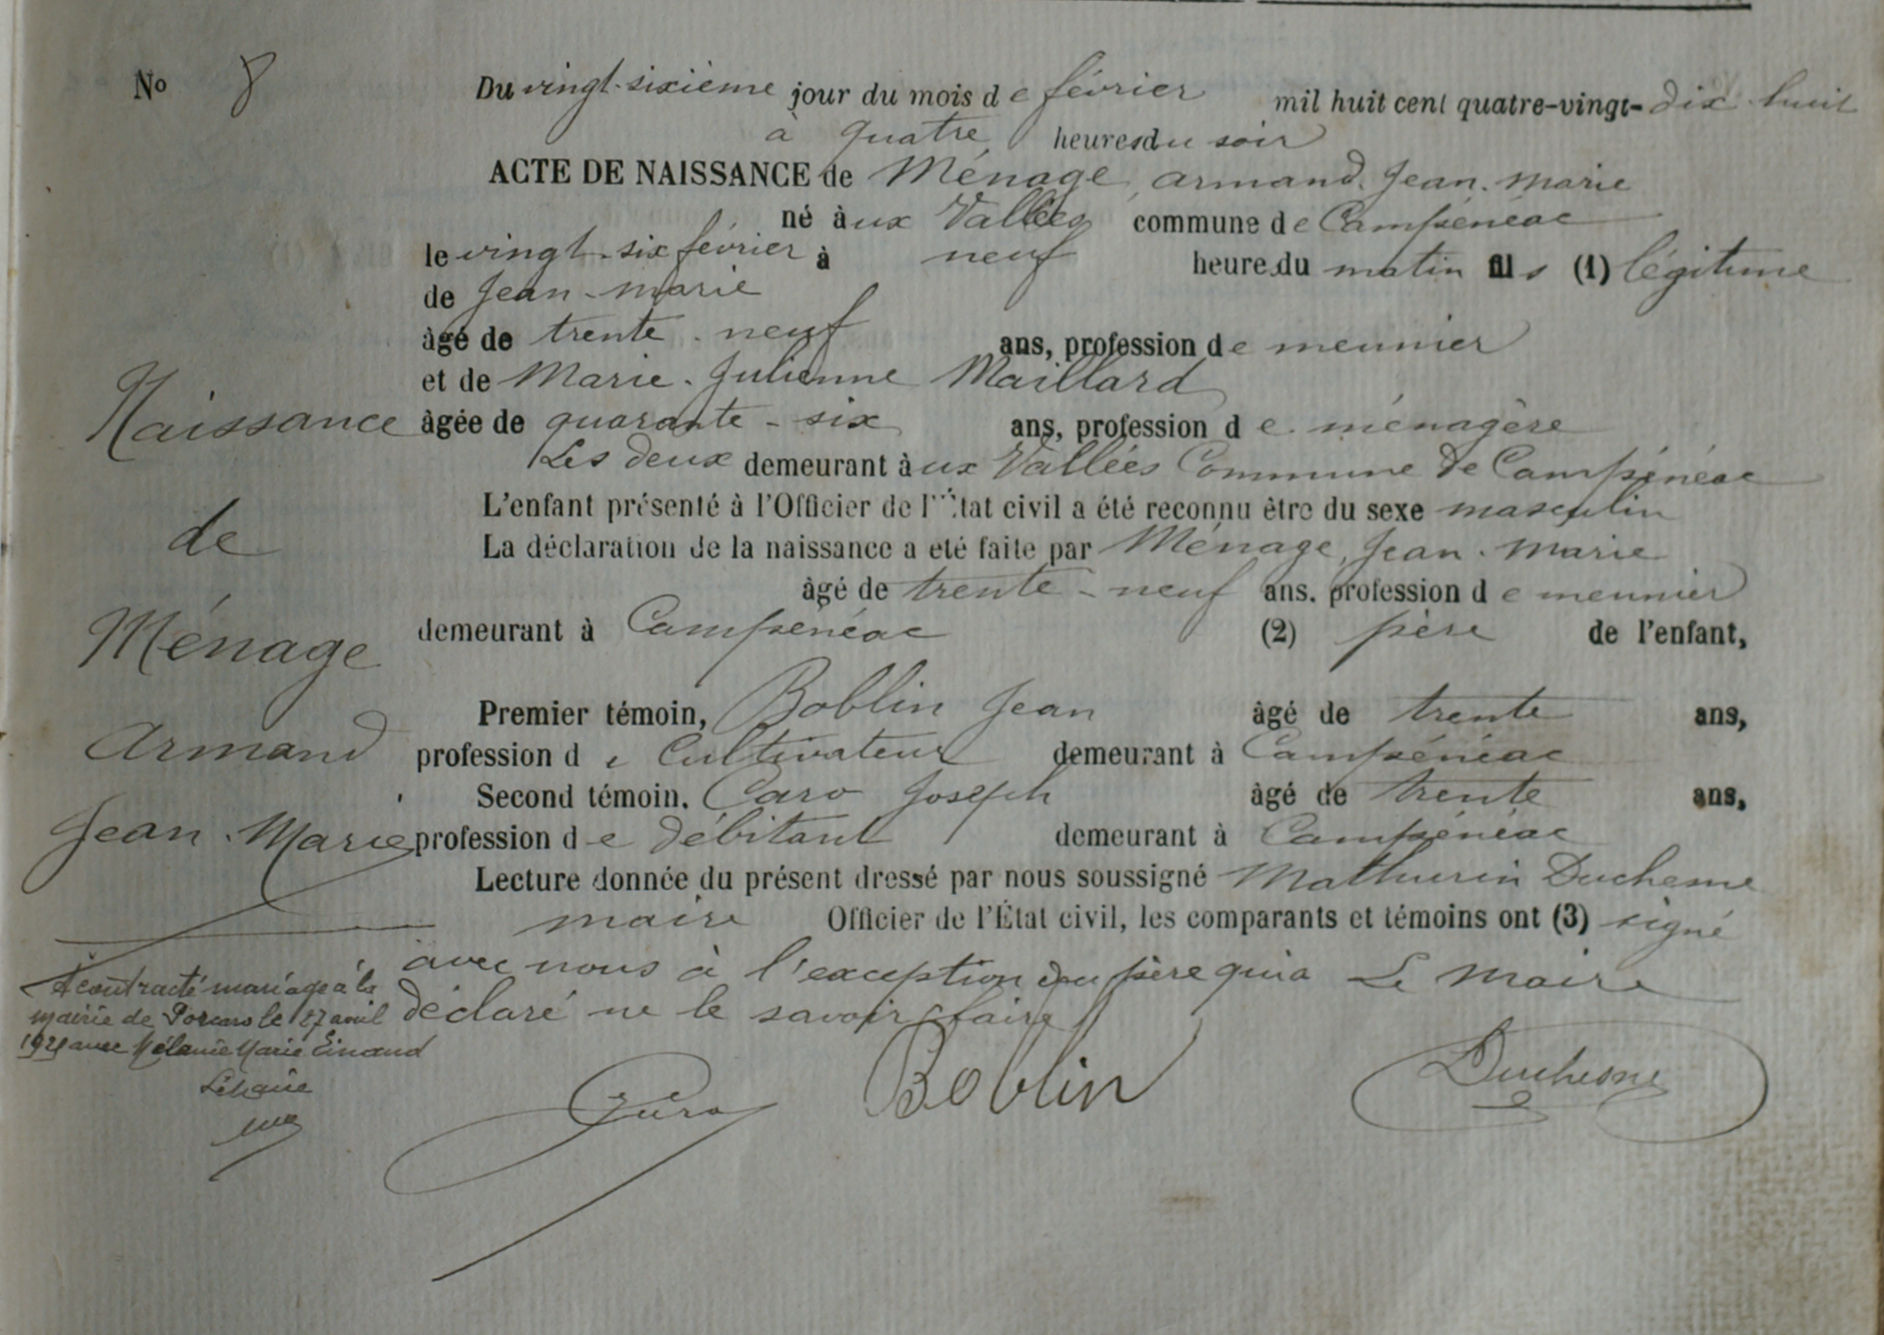 No 8
Du vingt-sixième jour du mois de février mil huit cent quatre-vingt-dix huit
à quatre heures du soir
ACTE DE NAISSANCE de Ménage Armand. Jean. Marie
né àux Vallées commune de Campénéac
le vingt-six février à neuf heures du matin fils (1) légitime
de Jean-Marie
âgé de trente-neuf ans, profession de meunier
et de Marie-Julienne Maillard
âgée de quarante-six ans, profession de ménagère
Les deux demeurant àux Vallées Commune de Campénéac
L'enfant présenté à l'Officier de l'État civil a été reconnu être du sexe masculin
La déclaration de la naissance a été faite par Ménage, Jean-Marie
âgé de trente-neuf ans, profession de meunier
demeurant à Campénéac (2) père de l'enfant,
Premier témoin, Boblin Jean âgé de trente ans,
profession de Cultivateur demeurant à Campénéac
Second témoin, Caro Joseph âgé de trente ans,
profession de débitant demeurant à Campénéac
Lecture donnée du présent dressé par nous soussigné Mathurin Duchesne
maire Officier de l'État civil, les comparants et témoins ont (3) signé
avec nous à l'exception du père qui a Le Maire
déclaré ne le savoir faire
Boblin Duchesne
Naissance
de
Ménage
Armand
Jean-Marie
A contracté mariage à la
mairie de Porcaro le 27 avril
avec Mélanie Marie
Le Maire